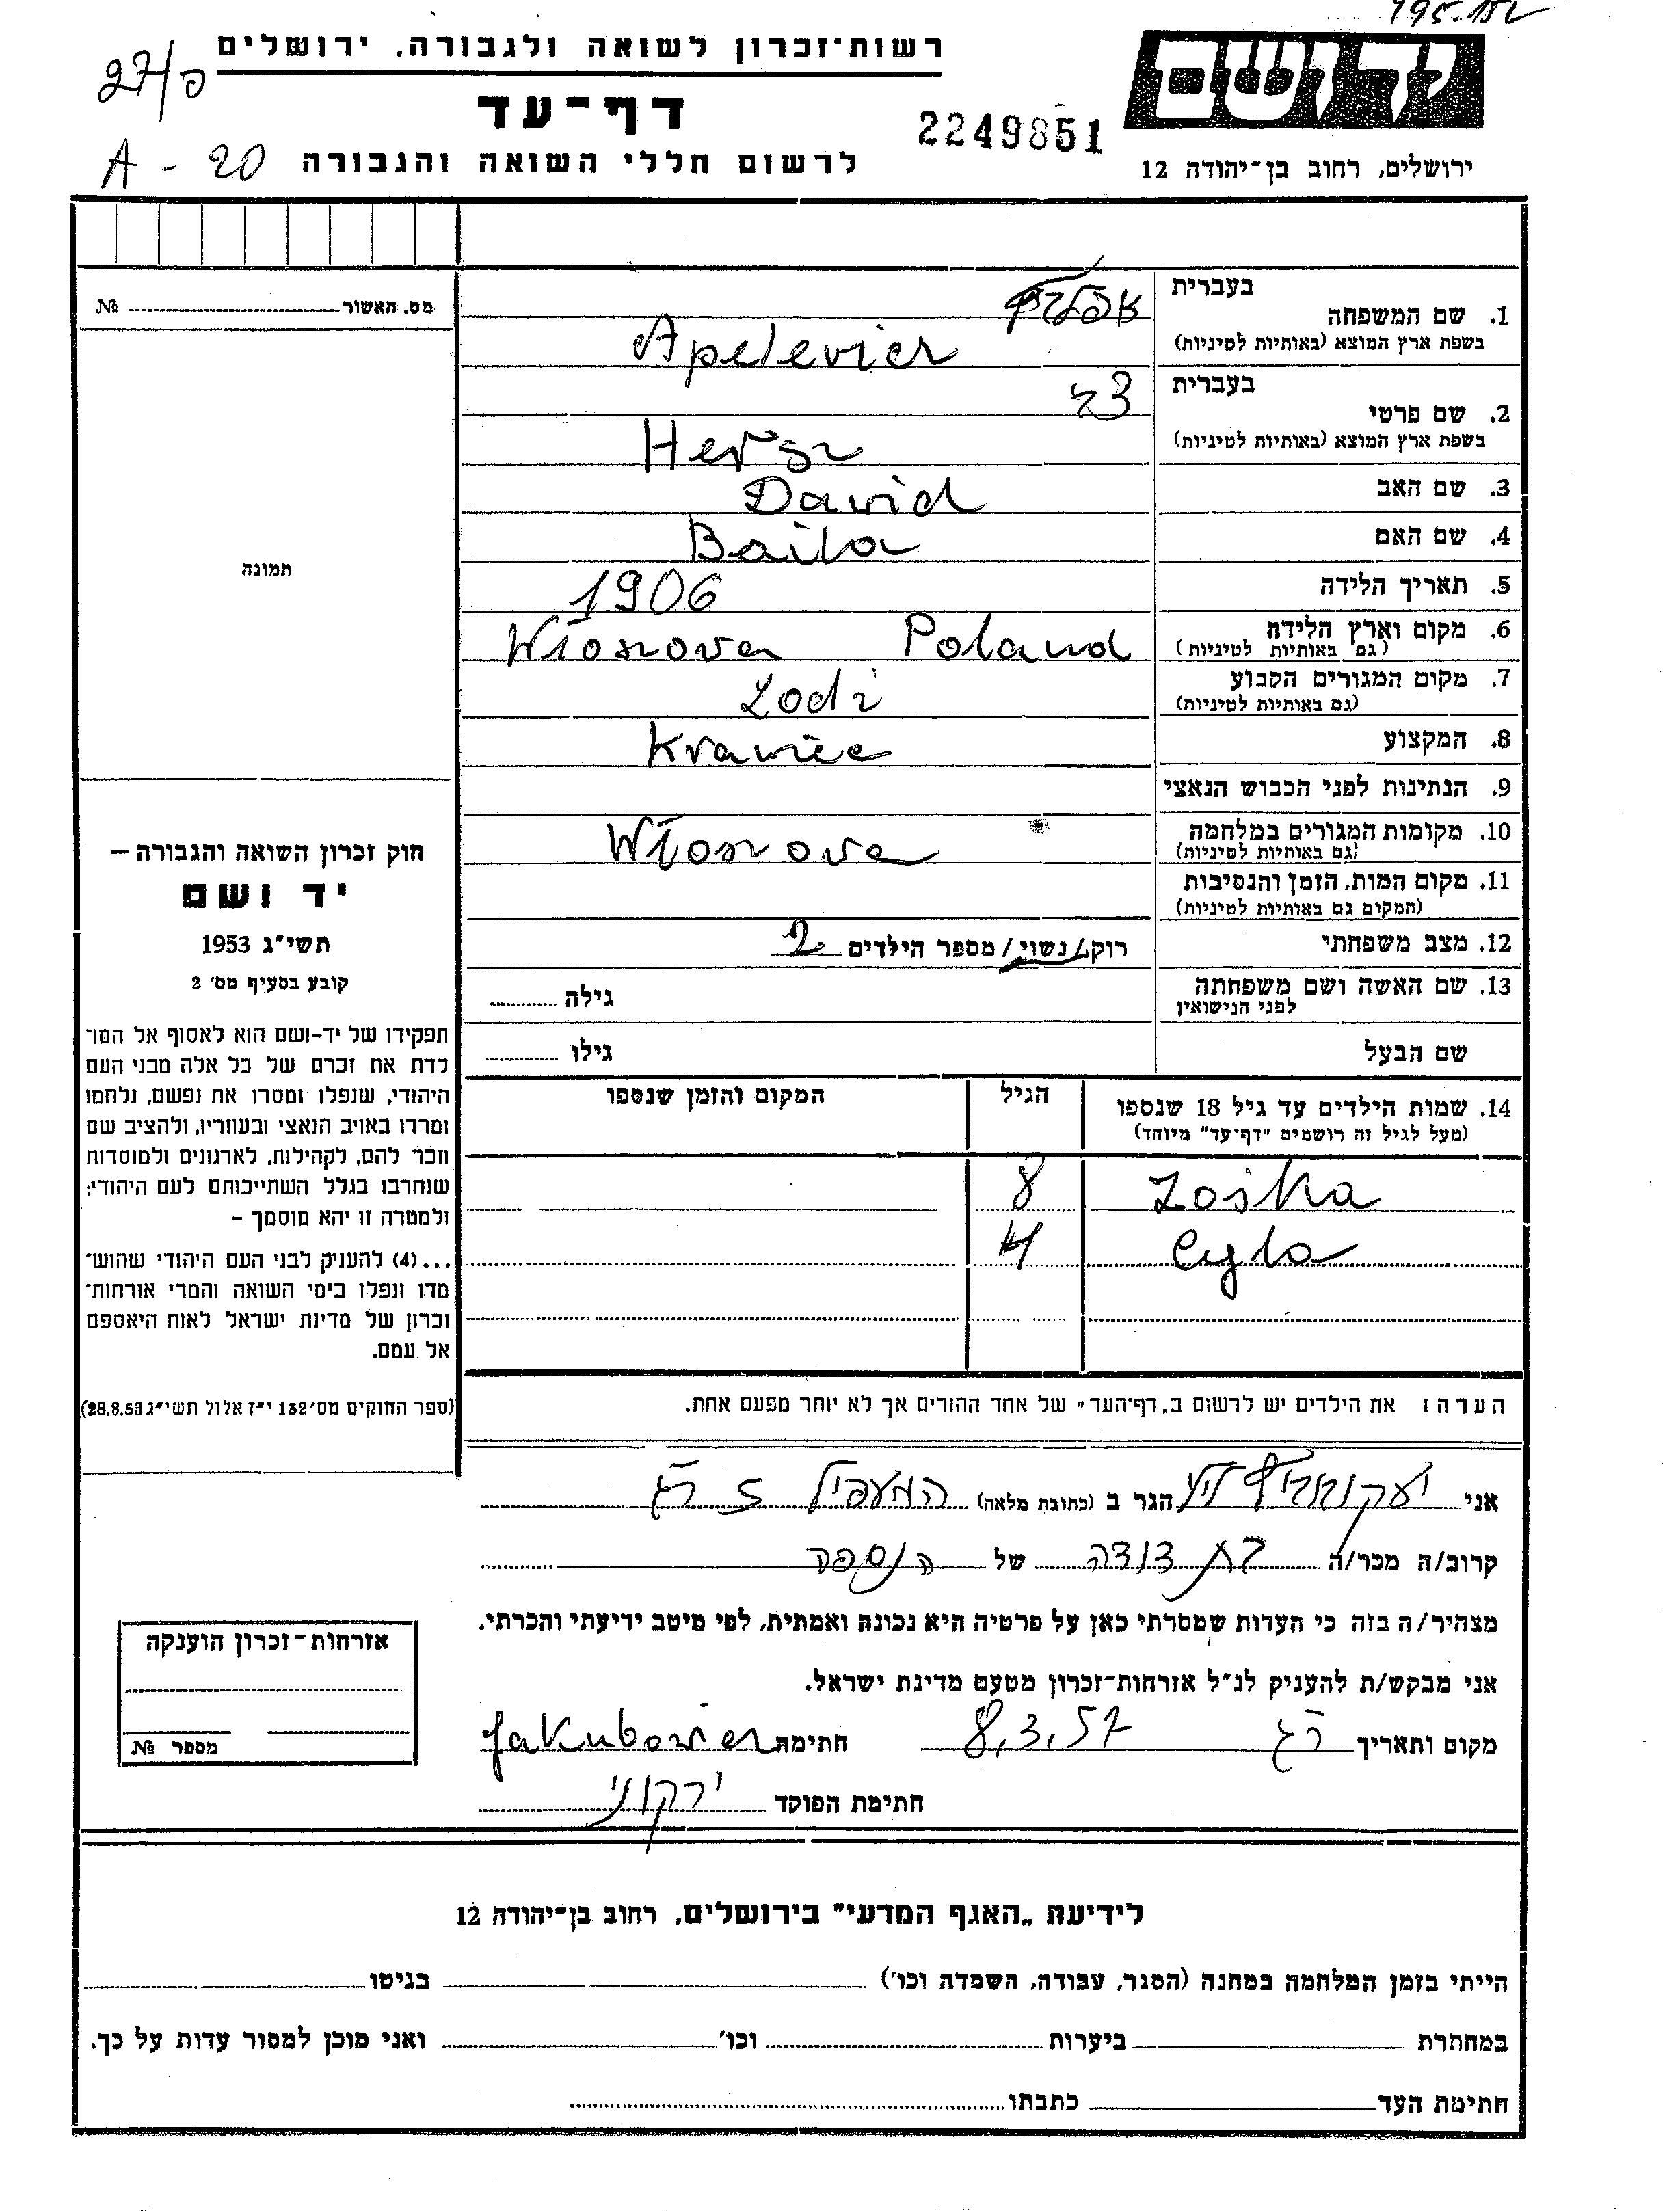 195-152
רשות־זכרון לשואה ולגבורה, ירושלים
יד ושם
27/פ
דף־עד
2249851
A - 20
לרשום חללי השואה והגבורה
ירושלים, רחוב בן־יהודה 12
מס. האשור № 
1. שם המשפחה
בעברית
בשפת ארץ המוצא (באותיות לטיניות) Apelevicz
2. שם פרטי
בעברית
בשפת ארץ המוצא (באותיות לטיניות) Hersz
3. שם האב David
4. שם האם Baila
5. תאריך הלידה 1906
6. מקום וארץ הלידה
(גם באותיות לטיניות) Wloszova Poland
7. מקום המגורים הקבוע
(גם באותיות לטיניות) Lodz
8. המקצוע Krawiec
9. הנתינות לפני הכבוש הנאצי
10. מקומות המגורים במלחמה
(גם באותיות לטיניות) Wloszova
11. מקום המות, הזמן והנסיבות
(המקום גם באותיות לטיניות)
12. מצב משפחתי רוק/נשוי/ מספר הילדים 2
13. שם האשה ושם משפחתה
לפני הנישואין
גילה
שם הבעל גילו
14. שמות הילדים עד גיל 18 שנספו
(מעל לגיל זה רושמים "דף־עד" מיוחד)
הגיל המקום והזמן שנספו
Zośka 8
Cyla 4
הערה: את הילדים יש לרשום ב„דף־העד" של אחד ההורים אך לא יותר מפעם אחת.
תמונה
חוק זכרון השואה והגבורה –
יד ושם
תשי"ג 1953
קובע בסעיף מס׳ 2
תפקידו של יד-ושם הוא לאסוף אל המו־
לדת את זכרם של כל אלה מבני העם
היהודי, שנפלו ומסרו את נפשם, נלחמו
ומרדו באויב הנאצי ובעוזריו, ולהציב שם
וזכר להם, לקהילות, לארגונים ולמוסדות
שנחרבו בגלל השתייכותם לעם היהודי;
ולמטרה זו יהא מוסמך –
...(4) להעניק לבני העם היהודי שהוש־
מדו ונפלו בימי השואה והמרי אזרחות־
זכרון של מדינת ישראל לאות היאספם
אל עמם.
(ספר החוקים מס׳ 132 י"ז אלול תשי"ג 28.8.53)
אני הגר ב (כתובת מלאה) המעפיל 5 רג
קרוב/ה מכר/ה בת דודה של הנספה
מצהיר/ה בזה כי העדות שמסרתי כאן על פרטיה היא נכונה ואמתית, לפי מיטב ידיעתי והכרתי.
אני מבקש/ת להעניק לנ"ל אזרחות־זכרון מטעם מדינת ישראל.
מקום ותאריך רג 8,3,57 חתימה Jakubowicz
חתימת הפוקד ירקוני
אזרחות־זכרון הוענקה
מספר №
לידיעת „האגף המדעי" בירושלים, רחוב בן־יהודה 12
הייתי בזמן המלחמה במחנה (הסגר, עבודה, השמדה וכו׳) בגיטו
במחתרת ביערות וכו׳ ואני מוכן למסור עדות על כך.
חתימת העד כתבתו